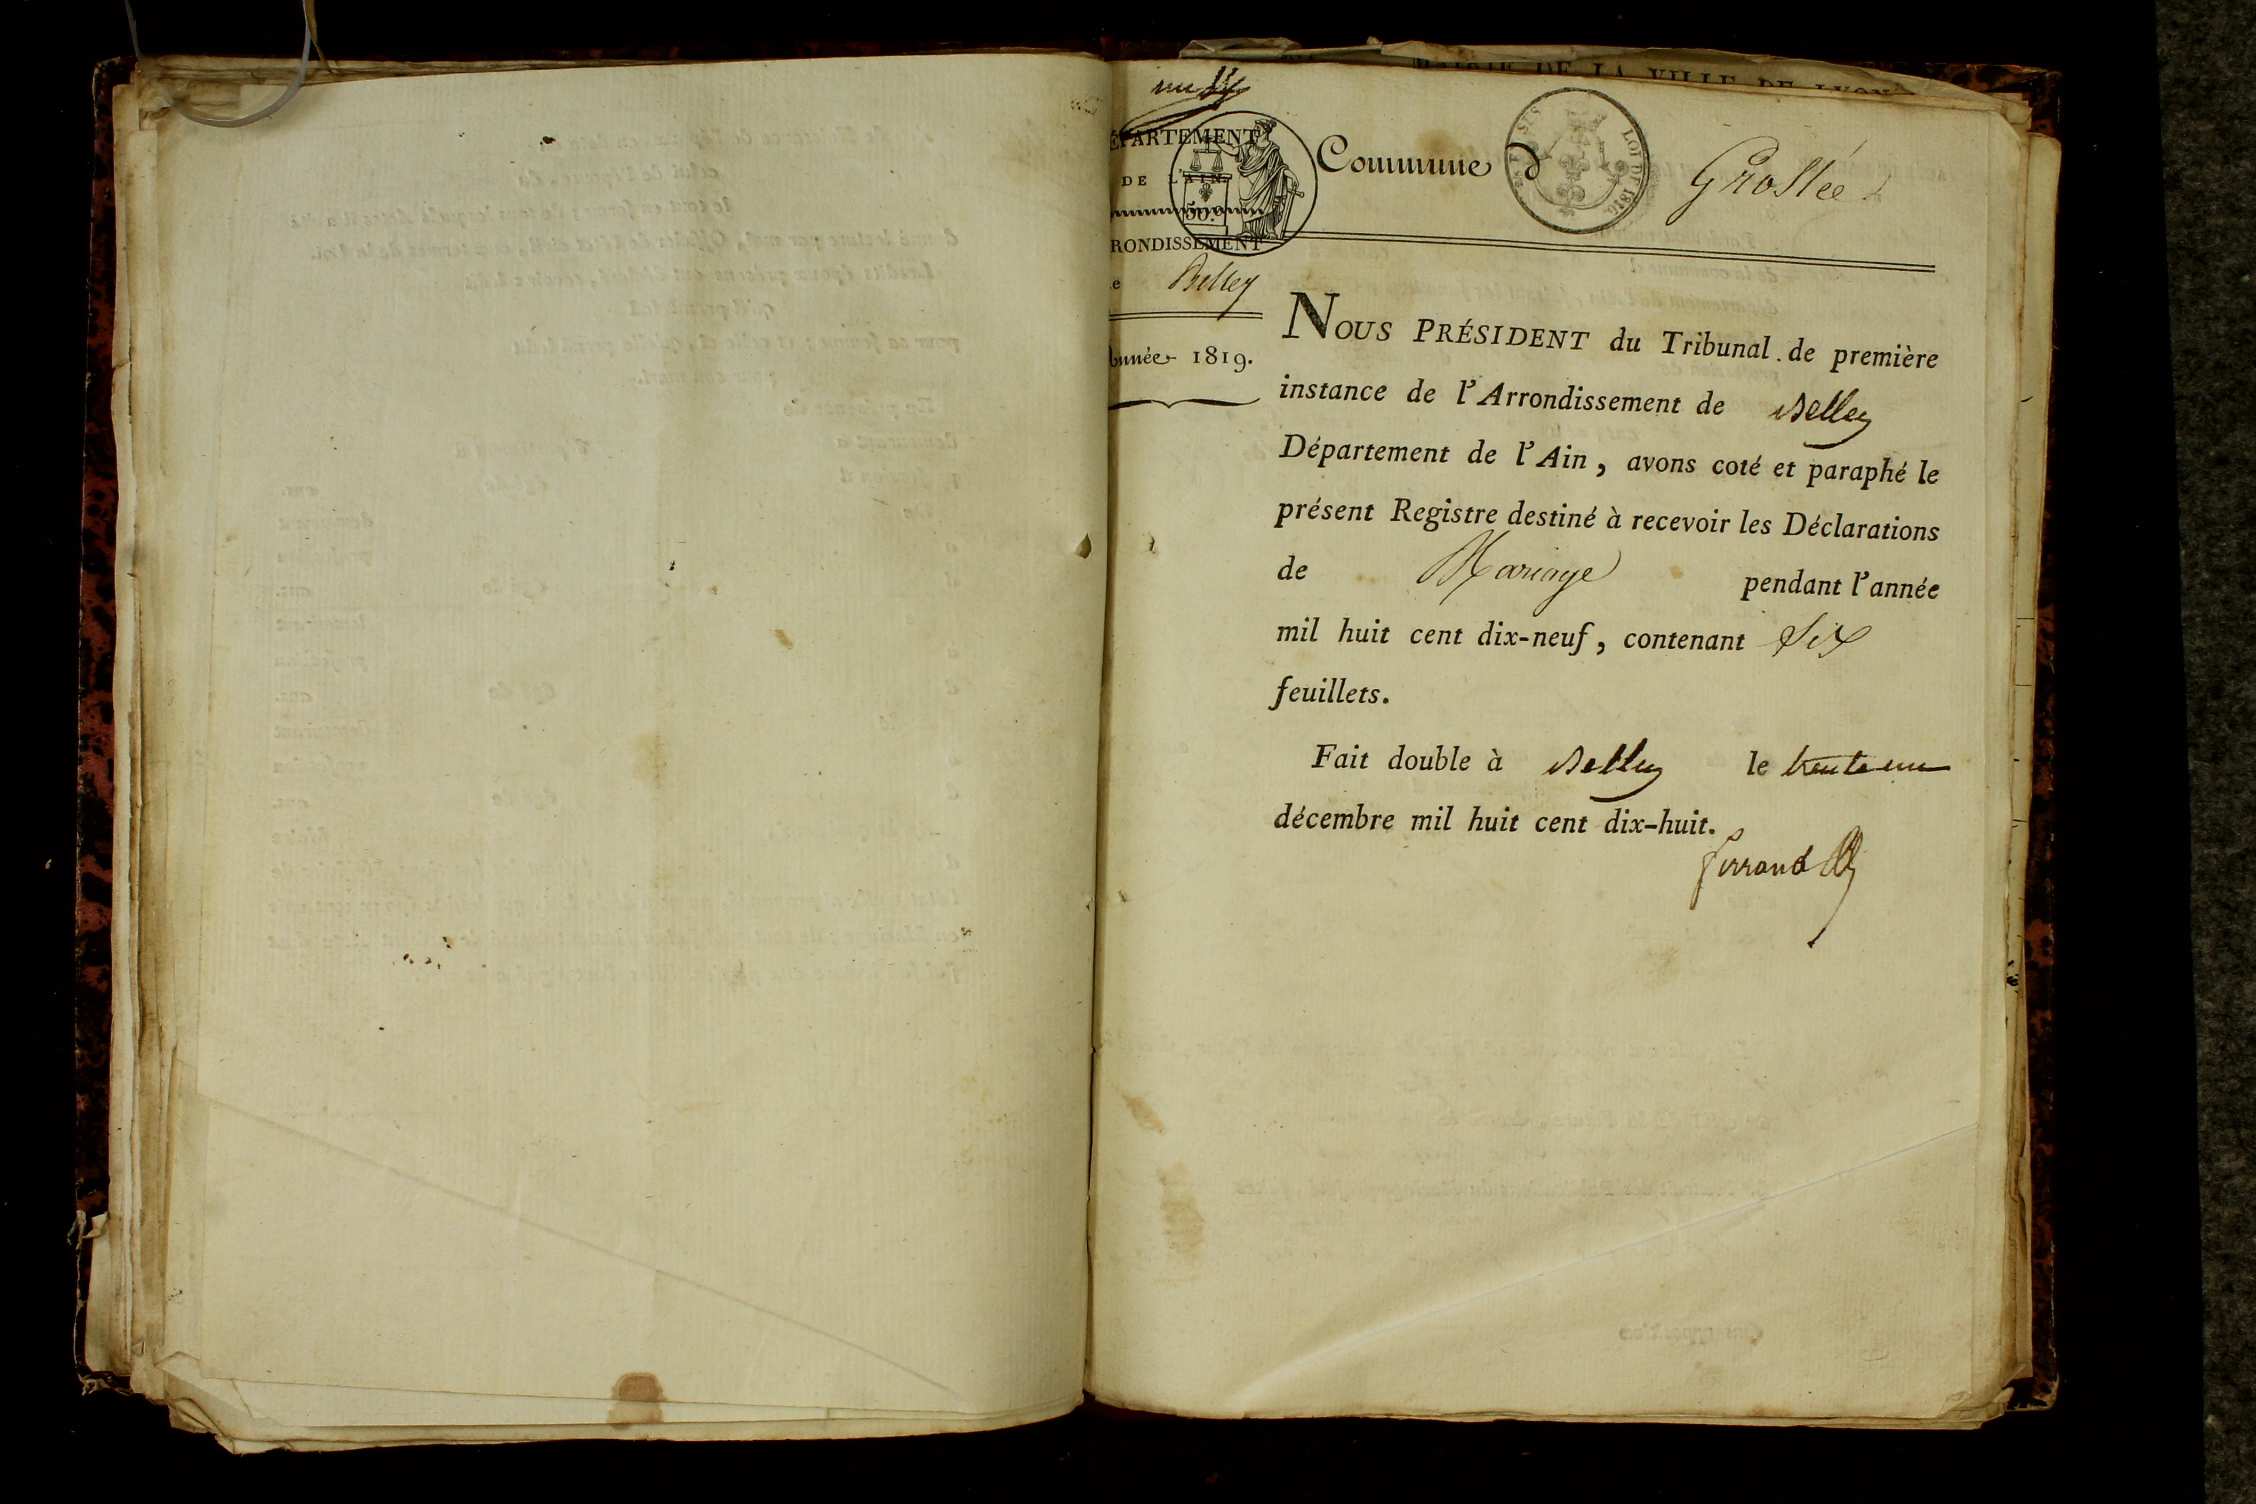 MAIRIE DE LA VILLE DE LYON
un
ÉPARTEMENT
DE L'AIN.
50.c
RONDISSEMENT
e Belley
Année 1819.
Commune d Groslée
LOI DE 1816.
NOUS PRÉSIDENT du Tribunal de première
instance de l'Arrondissement de Belley
Département de l'Ain, avons coté et paraphé le
présent Registre destiné à recevoir les Déclarations
de Mariage pendant l'année
mil huit cent dix-neuf, contenant Six
feuillets.
Fait double à Belley le trente un
décembre mil huit cent dix-huit.
ferrand